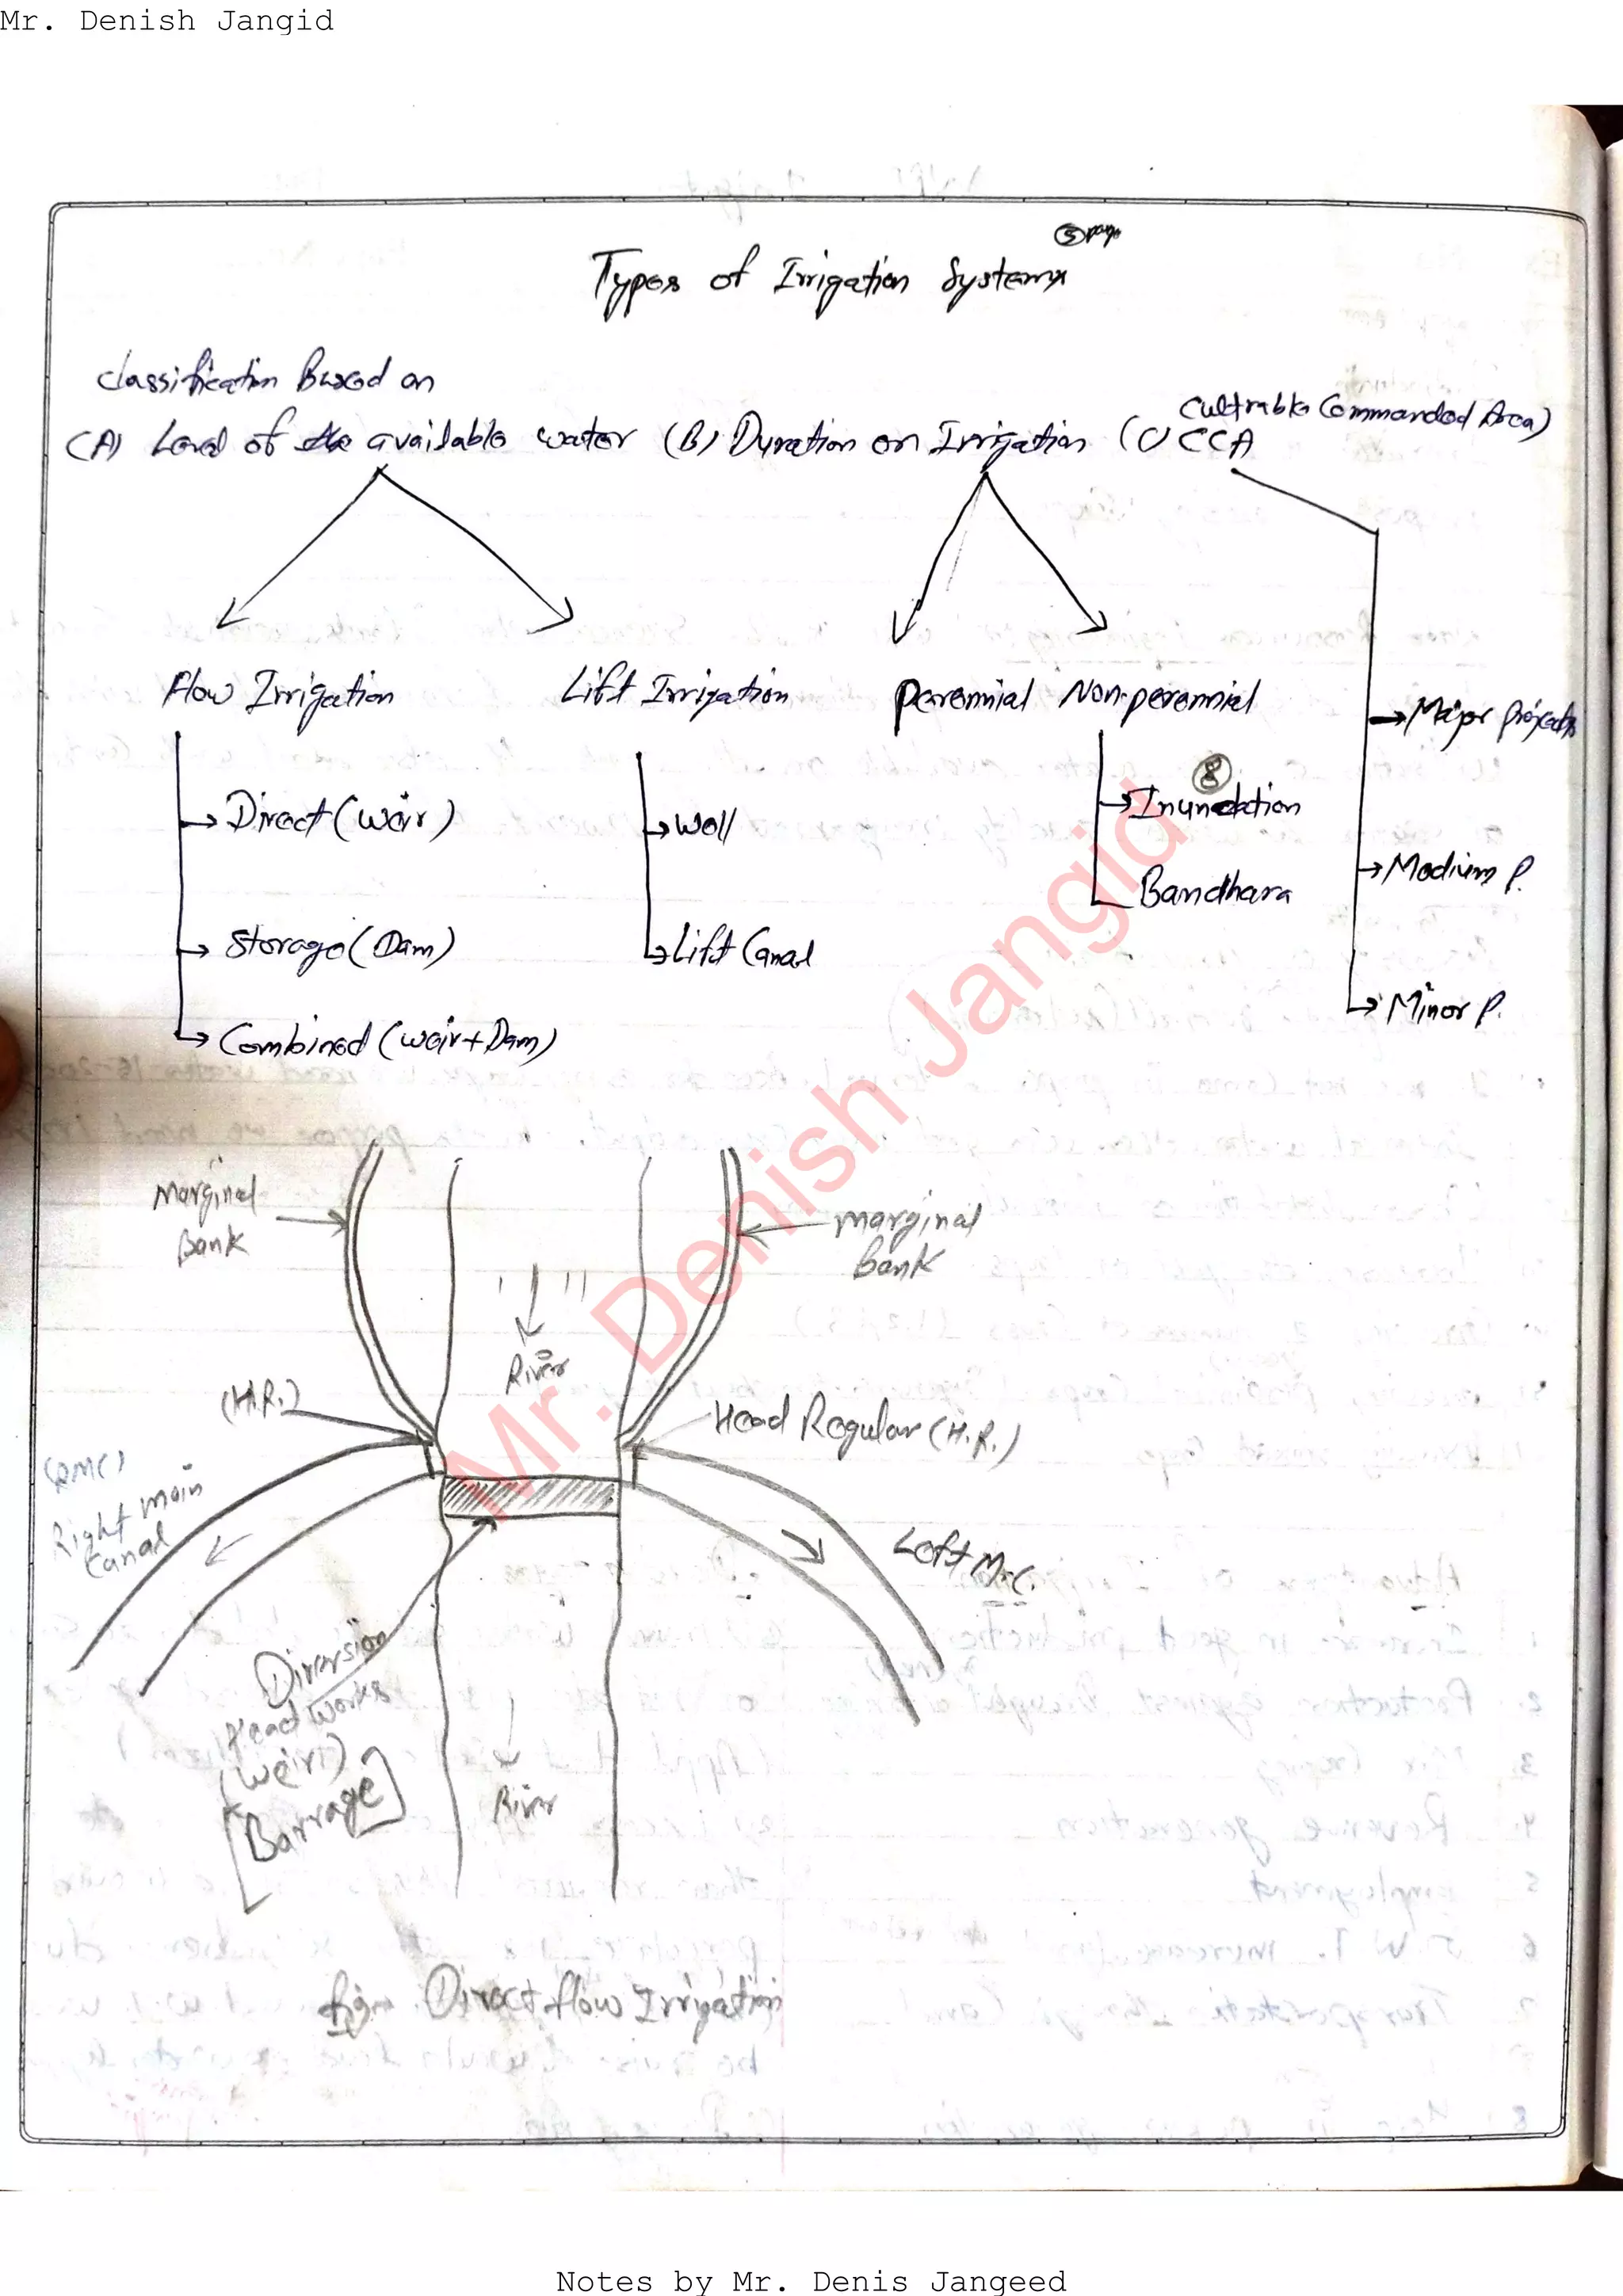 Mr. Denish Jangid
Types of Irrigation Systems
Classification Based on
(A) Level of the available water (B) Duration on Irrigation (C) CCA
Cultrable Commanded Area)
Flow Irrigation
Lift Irrigation
Perennial
Non-perennial
Major Projects
Direct (Weir)
Well
8
Inundation
Medium P.
Bandhara
Storage (Dam)
Lift Canal
Minor P.
Combined (Weir + Dam)
Marginal
Bank
marginal
Bank
River
(H.R.)
Head Regular (H.R.)
(RMC)
Right main
Canal
Left M.C.
Diversion
Head Works
(Weir)
[Barrage]
River
fig. Direct flow Irrigation
Mr. Denish Jangid
Notes by Mr. Denis Jangeed